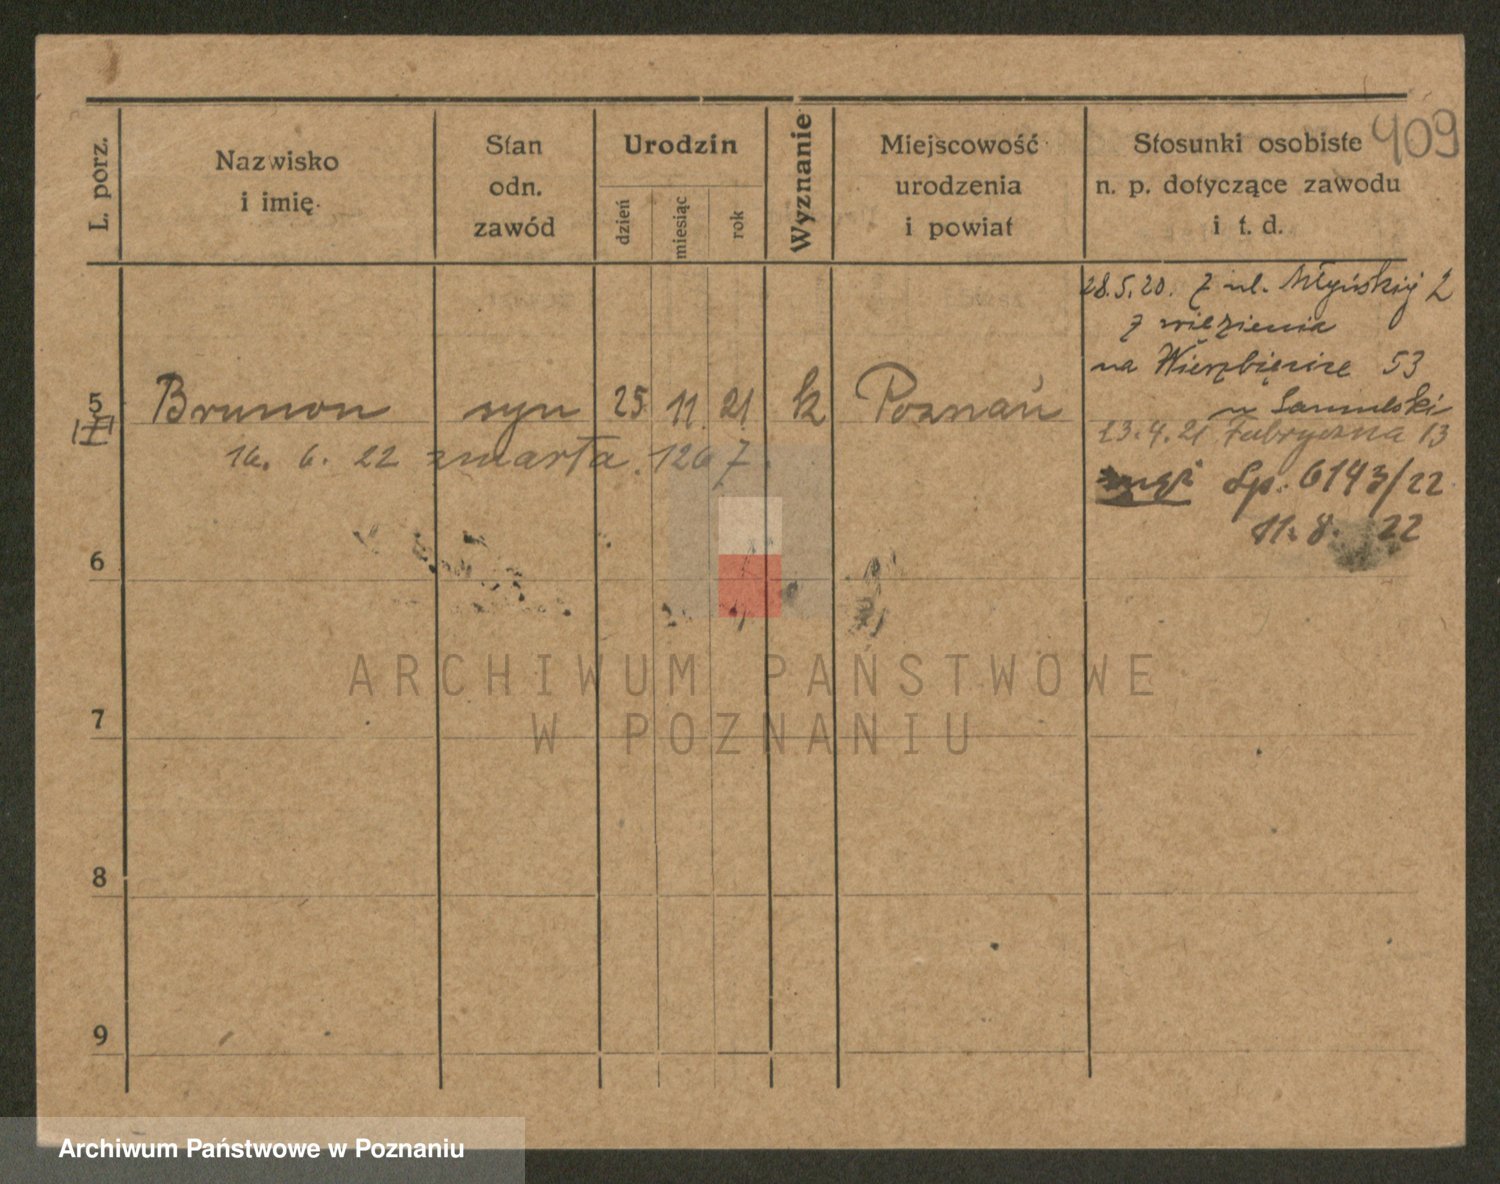 409
L. porz.
Nazwisko
i imię.
Stan
odn.
zawód
Urodzin
dzień
miesiąc
rok
Wyznanie
Miejscowość
urodzenia
i powiat
Stosunki osobiste
n. p. dotyczące zawodu
i t. d.
28.5.20. z ul. Młyńskiej 2
z więzienia
na Wierzbięcice 53
5 Brunon syn 25 11 21 k Poznań
13.4.21 Fabryczna 13
16. 6. 22 zmarła. 1267
Sp. 6143/22
11. 8. 22
6
7
8
9
ARCHIWUM PAŃSTWOWE
W POZNANIU
Archiwum Państwowe w Poznaniu